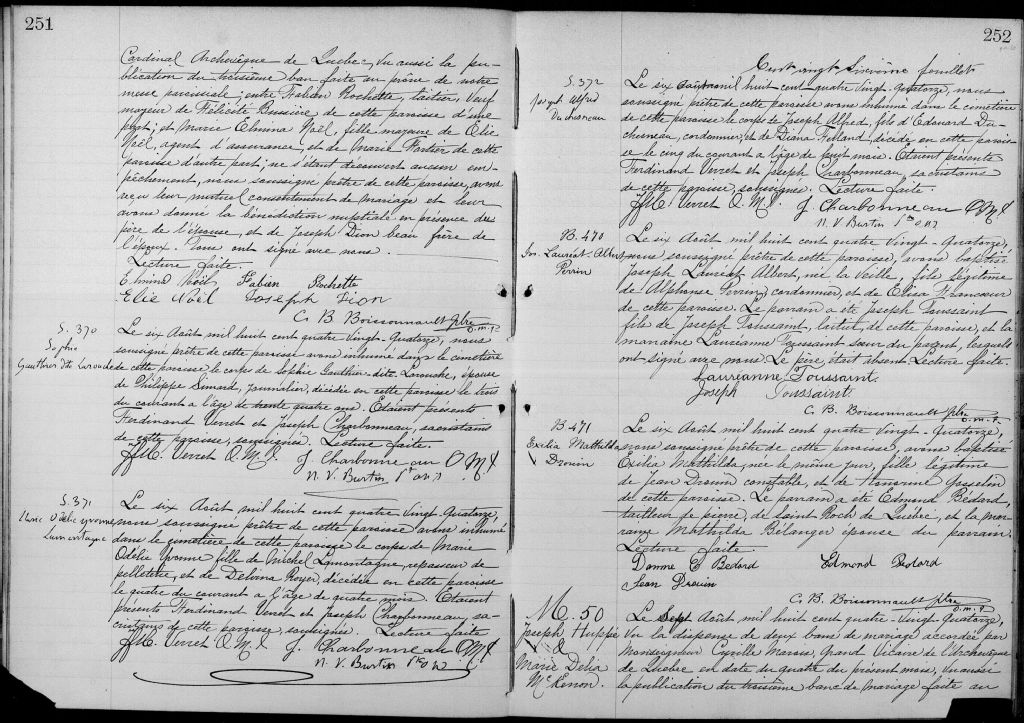 251
Cardinal Archevêque de Quebec, vu aussi la pu-
blication du troisième ban faite au prône de notre
messe paroissiale, entre Fabien Rochette, laitier, Veuf
majeur de Félicité Bussière de cette paroisse d'une
part; et Marie Elmina Noël, fille majeure de Elie
Noël, agent d'assurance, et de Marie Fortier de cette
paroisse d'autre part; ne s'étant découvert aucun em-
pêchement, nous soussigné prêtre de cette paroisse, avons
reçu leur mutuel consentement de mariage et leur
avons donné la bénédiction nuptiale en présence du
père de l'épouse, et de Joseph Dion beau frère de
l'époux. Tous ont signé avec nous.
Lecture faite.
Elmina Noël Fabien Rochette
Elie Noël Joseph Dion
C. B. Boissonnault ptre
o.m.i.
S. 370
Sophie
Gauthier dit Larouche
Le six Août mil huit cent quatre Vingt-Quatorze, nous
soussigné prêtre de cette paroisse avons inhumé dans le cimetière
de cette paroisse le corps de Sophie Gauthier-dite-Larouche, épouse
de Philippe Simard, journalier, décédée en cette paroisse le trois
du courant a l'âge de trente quatre ans. Etaient présents
Ferdinand Verret et Joseph Charbonneau, sacristains
de cette paroisse, soussignés. Lecture faite.
Verret O.M.I. J Charbonneau OMI
N. V. Burtin
S. 371
Marie Odelie Yvonne
Lamontagne
Le six Août mil huit cent quatre Vingt-Quatorze,
nous soussigné prêtre de cette paroisse avons inhumé
dans le cimetière de cette paroisse le corps de Marie
Odélie Yvonne fille de Michel Lamontagne, repasseur de
pelleterie, et de Delvina Royer, décédée en cette paroisse
le quatre du courant a l'âge de quatre mois. Etaient
présents Ferdinand Verret et Joseph Charbonneau, sa-
cristains de cette paroisse, soussignés. Lecture faite
Verret O.M.I J. Charbonneau OMI
N. V. Burtin
252
Cent vingt sixième feuillet
S. 372
Joseph Alfred
Duchesneau
Le six Août mil huit cent quatre Vingt-Quatorze, nous
soussigné prêtre de cette paroisse avons inhumé dans le cimetière
de cette paroisse le corps de Joseph Alfred, fils d'Edouard Du-
chesneau, cordonnier, et de Diana Falland, décédé en cette parois-
se le cinq du courant a l'âge de huit mois. Etaient présents
Ferdinand Verret et Joseph Charbonneau, sacristains
de cette paroisse, soussignés. Lecture faite.
Verret O.M.I. J. Charbonneau OMI
N. V. Burtin
B. 470
Jos. Lauréat-Albert
Perrin
Le six Août mil huit cent quatre Vingt-Quatorze,
nous soussigné prêtre de cette paroisse, avons baptisé
Joseph Lauréat Albert, né la Veille, fils légitime
de Alphonse Perrin, cordonnier, et de Elisa Francœur
de cette paroisse. Le parrain a été Joseph Toussaint
fils de Joseph Toussaint, laitier, de cette paroisse, et la
marraine Lauréanne Toussaint sœur du parent, lesquels
ont signé avec nous. Le père était absent Lecture faite.
Lauréanne Toussaint.
Joseph Toussaint.
C. B. Boissonnault ptre
o.m.i.
B. 471
Exilia Mathilda
Drouin
Le six Août mil huit cent quatre Vingt-Quatorze,
nous soussigné prêtre de cette paroisse, avons baptisé
Exilia Mathilda, née le même jour, fille légitime
de Jean Drouin constable, et de Honorine Gosselin
de cette paroisse. Le parrain a été Edmond Bédard,
tailleur de pierre, de Saint Roch de Québec, et la mar-
raine Mathilda Bélanger épouse du parrain.
Lecture faite
Damme E Bedard Edmond Bedard
Jean Drouin
C. B. Boissonnault ptre
o.m.i.
M. 50
Joseph Huppé
&
Marie Delia
McKenon.
Le Sept Août mil huit cent quatre-Vingt-Quatorze,
Vu la dispense de deux bans de mariage accordée par
Monseigneur Cyrille Marois, Grand Vicaire de l'Archevêque
de Québec en date du quatre du présent mois, vu aussi
la publication du troisième banc de mariage faite au